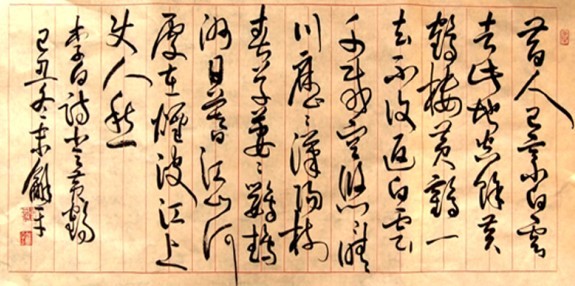 昔人已乘白雲
去此地空餘黄
鶴樓黄鶴一
去不復返白雲
千載空悠悠晴
川歷歷漢陽樹
春草萋萋鸚鵡
洲日暮江山何
處在煙波江上
使人愁
李白詩黄鶴
己丑冬